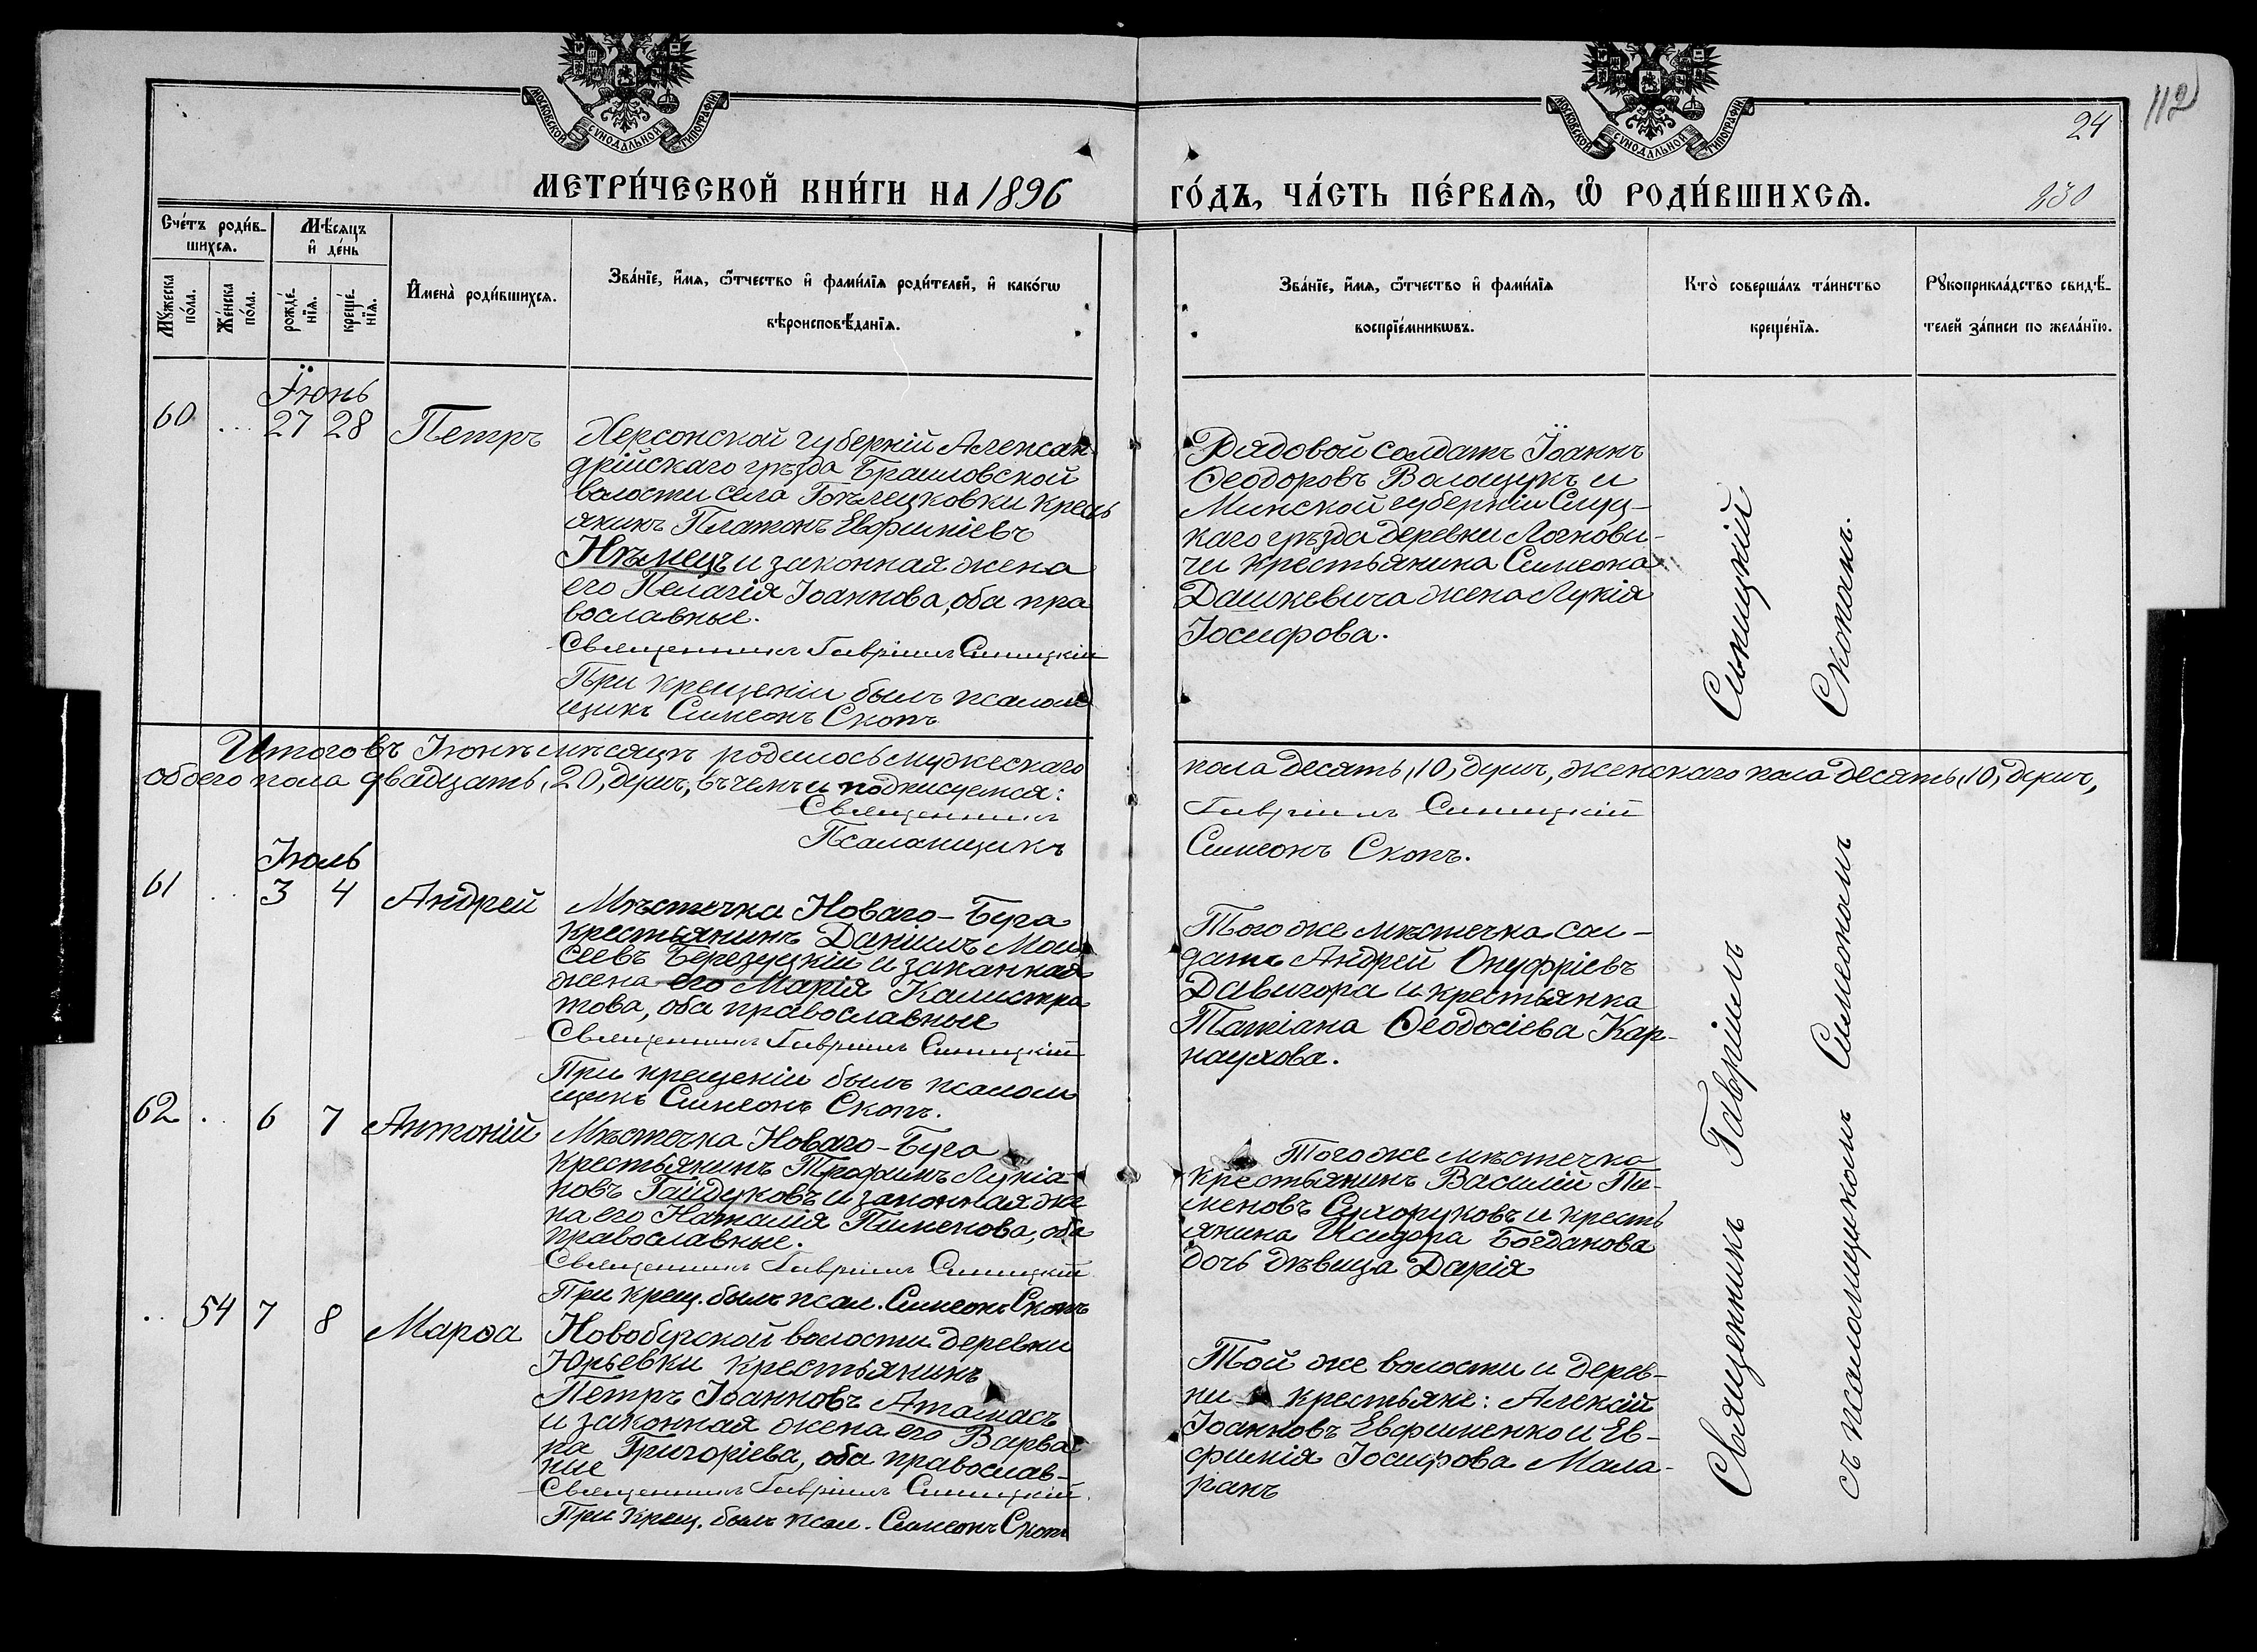 МОСКОВСКОЙ СѴНОДАЛЬНОЙ ТИПОГРАФІИ
МОСКОВСКОЙ СѴНОДАЛЬНОЙ ТИПОГРАФІИ
112
24
МЕТРИ́ЧЕСКОЙ КНИ́ГИ НА 1896
ГО́ДЪ, ЧА́СТЬ ПЕ́РВАЯ, Ѡ РОДИ́ВШИХСЯ.
230
Сче́тъ роди́в-
шихся.
Мѣ́сяцъ
и де́нь
Мꙋ́жеска
по́ла.
Же́нска
по́ла.
рожде́-
нїя.
креще́-
нїя.
Имена̀ роди́вшихся.
Зва́нїе, и́мя, ѻ́тчество и фами́лїя роди́телей, и како́гѡ
вѣроисповѣ́данїя.
Зва́нїе, и́мя, ѻ́тчество и фами́лїя
воспрїе́мникѡвъ.
Кто̀ соверша́лъ та́инство
креще́нїя.
Рꙋкоприкла́дство свидѣ́-
телей за́писи по жела́нїю.
Іюнь
60 ... 27 28 Петръ
Херсонской губерніи Алексан-
дрійскаго уѣзда Браиловской
волости села кресть
янинъ Платонъ Евфиміевъ
Нѣмецъ и законная жена
его Пелагія Іоаннова, оба пра
вославные.
Священникъ Гавріилъ Синицкій
При крещеніи былъ псалом
щикъ Симеонъ Скопъ
Рядовой солдатъ Іоаннъ
Ѳеодоровъ Волощукъ и
Минской губерніи Слуц-
каго уѣзда деревни Логнови-
чи крестьянина Симеона
Дашкевича жена Лукія
Іосифова.
Итого въ Іюнѣ мѣсяцѣ родилось мужескаго
пола десять, 10, душъ, женскаго пола десять, 10, душъ,
обоего пола двадцать, 20, душъ, въ чемъ и подписуемся:
Священникъ Гавріилъ Синицкій
Псаломщикъ Симеонъ Скопъ.
Іюль
61 .. 3 4 Андрей
Мѣстечка Новаго-Буга
крестьянинъ Даніилъ Мои
сеевъ Березуцкій и законная
жена его Марія Калистра
това, оба православные
Священникъ Гавріилъ Синицкій
При крещеніи былъ псалом
щикъ Симеонъ Скопъ.
Того же мѣстечка сол-
датъ Андрей Онуфріевъ
Давигора и крестьянка
Татіана Ѳеодосіева Кар-
наухова.
62 . 6 7 Антоній
Мѣстечка Новаго-Буга
крестьянинъ Трофимъ Лукіа
новъ Гайдуковъ и законная же
на его Наталія Пименова, оба
православные.
Священникъ Гавріилъ Синицкій
При крещ. былъ псал. Симеонъ Скопъ
Того же мѣстечка
крестьянинъ Василій Пи-
меновъ Сухоруковъ и кресть
янина Исидора Богданова
дочь дѣвица Дарія
.. 54 7 8 Марѳа
Новобугской волости деревни
Юрьевки крестьянинъ
Петръ Іоанновъ Атамасъ
и законная жена его Варва
ра Григоріева, оба православ-
ные
Священникъ Гавріилъ Синицкій.
При крещ. былъ псал. Симеонъ Скопъ
Той же волости и дерев-
ни крестьяне: Алексій
Іоанновъ Евфименко и Ев-
фимія Іосифова Мала-
Священникъ Гавріилъ Синицкій
съ псаломщикомъ Симеономъ Скопомъ.